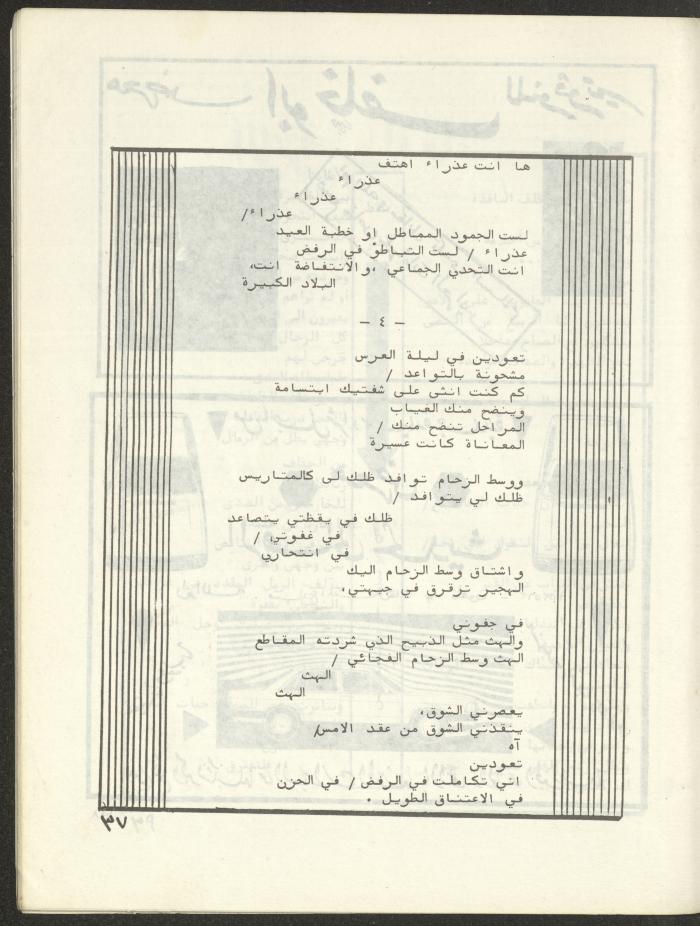 ها انت عذراء اهتف
عذراء
عذراء
عذراء/
لست الجمود المماطل او خطبة العيد
عذراء / لست التباطؤ في الرفض
انت التحدي الجماعي ،والانتفاضة انت،
البلاد الكبيرة
- ٤ -
تعودين في ليلة العرس
مشحونة بالتواعد /
كم كنت انثى على شفتيك ابتسامة
وينضح منك الغياب
المراحل تنضح منك /
المعاناة كانت عسيرة
ووسط الزحام توافد ظلك لى كالمتاريس
ظلك لي يتوافد /
ظلك في يقظتي يتصاعد
في غفوتي /
في انتحاري
واشتاق وسط الزحام اليك
الهجير ترقرق في جبهتي،
في جفوني
والهث مثل الذبيح الذي شردته المقاطع
الهث وسط الزحام الفجائي /
الهث
الهث
يعصرني الشوق،
ينقذني الشوق من عقد الامس/
آه
تعودين
اني تكاملت في الرفض / في الحزن
في الاعتناق الطويل .
٣٧